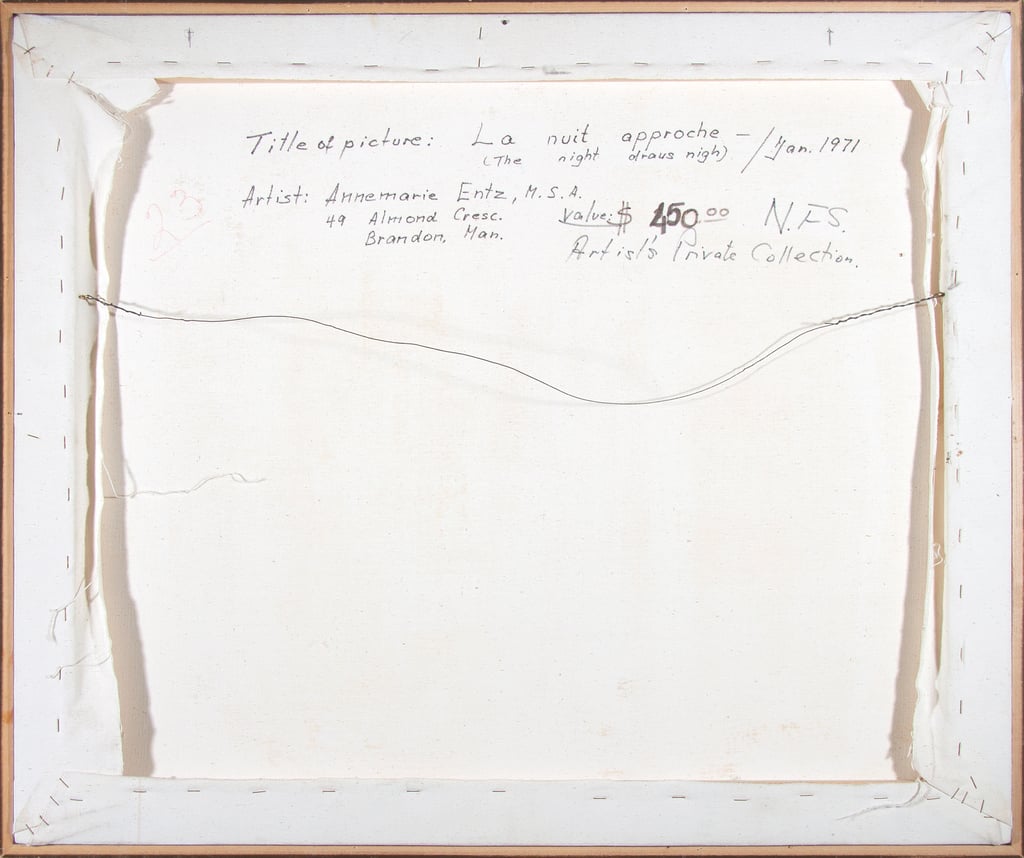 Title of picture: La nuit approche - / Jan. 1971
(The night draws nigh)
Artist: Annemarie Entz, M.S.A.
49 Almond Cresc. value: $ 450.00 N.F.S.
Brandon, Man.
Artist's Private Collection.
23